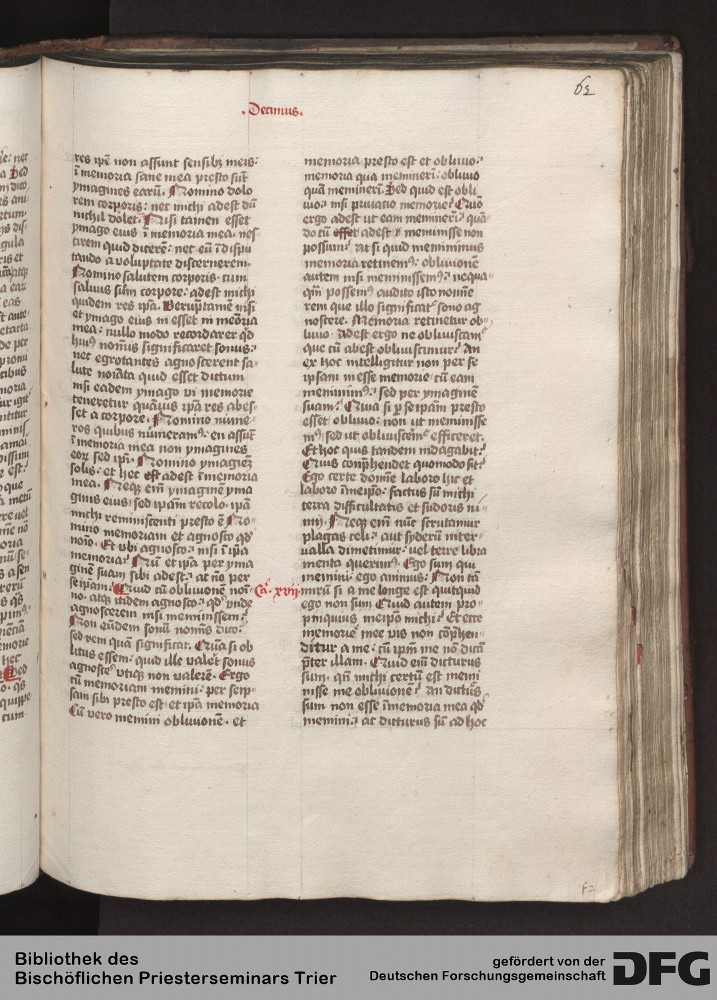 62
.Decimus.
res ip̅e non assunt sensibꝫ meis:
ī memoria sane mea presto su̅t
ymagines earu̅. Nomino dolo
rem corporis: nec michi adest du̅
nichil dolet. Nisi tamen esset
ymago eius ī memoria mea. nes
cirem quid dicere̅: nec eu̅ ī dispu
tando a voluptate discernerem.
Nomino salutem corporis. cum
saluus sim corpore: adest michi
quidem res ip̅a. Verūptame̅ nisi
et ymago eius in esset in me̅oria
mea: nullo modo recordarer qd̅
huiꝰ nomi̅s significaret sonus:
nec egrotantes agnoscerent sa
lute no̅i̅ata quid esset dictum
nisi eadem ymago vi memorie
teneretur qua̅uis ip̅a res abes
set a corpore. Nomino nume
ros quibus numeramꝰ: en assu̅t
ī memoria mea non ymagines
eoꝝ sed ip̅i. Nomino ymagine̅
solis: et hec est adest ī memoria
mea. Neqꝫ em̅ ymagine̅ yma
ginis eius: sed ip̅am recolo. ip̅a
michi reminiscenti presto e̅ No
mino memoriam et agnosco qd̅
no̅i̅o. Et vbi agnosco: nisi ī ip̅a
memoria: Nu̅ et ip̅a per yma
gine̅ suam sibi adest: ac no̅ per
seip̅am: Quid cu̅ obliuione̅ no̅i̅
Ca̅. xvii
no. atqꝫ itidem agnosco: qd̅ vnde
agnoscerem nisi meminissem:
Non eu̅dem sonu̅ nomi̅s dico:
sed rem qua̅ significat. Qua̅ si ob
litus essem: quid ille valet sonus
agnosce̅ vtiqꝫ non valere̅. Ergo
cu̅ memoriam memini: per seip
sam sibi presto est: et ip̅a memoria
Cu̅ vero memini obliuione̅. et
memoria presto est et obliuio:
memoria qua memineri̅: obliuio
qua̅ meminerī. Sed quid est obli
uio: nisi priuacio memorie: Quō
ergo adest ut eam memineri̅: qua̅
do cu̅ esset adest meminisse non
possum: at si quid meminimus
memoria retinemꝰ: obliuione̅
autem nisi meminissemꝰ: nequa
qm̅ possemꝰ audito isto nomīe
rem que illo significat̅ sono ag
noscere. Memoria retinetur ob
liuio. Adest ergo ne obliuiscam̅
que cu̅ abest obliuiscimur: An
ex hoc intelligitur non per se
ipsam in esse memorie: cu̅ eam
meminimꝰ: sed per ymagine̅
suam: Quia si ꝑ seip̅am presto
esset obliuio: non ut meminisse
mꝰ: sed ut obliuiscem̅ efficeret.
Et hoc quis tandem indagabit:
Quis co̅phendet quomodo sit:
Ego certe domīe laboro hic et
laboro ī meip̅o: factus su̅ michi
terra difficultatis et sudoris ni
mij. Neqꝫ em̅ nu̅c scrutamur
plagas celi: aut syderu̅ inter
ualla dimetimur: vel terre libra
menta querimꝰ. Ego sum qui
memini: ego animus: Non ta̅
miru̅ si a me longe est quitquid
ego non sum Quid autem pro
pinquius meip̅o michi: Et ecce
memorie mee uis non co̅phen
ditur a me: cu̅ ip̅m me no̅ dica̅
p̅ter illam. Quid em̅ dicturus
sum. qn̅ michi certu̅ est memi
nisse me obliuione̅: An dictu̅s
sum non esse ī memoria mea qd̅
memini: ac dicturus su̅ ad hoc
Bibliothek des
Bischöflichen Priesterseminars Trier
gefördert von der
Deutschen Forschungsgemeinschaft
DFG